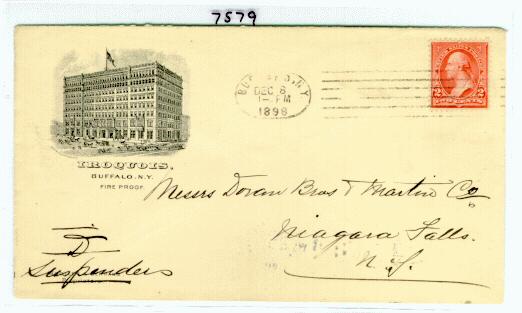 7579
BUFFALO, N.Y.
DEC 8
1- PM
1898
2 2
IROQUOIS,
BUFFALO, N.Y.
FIRE PROOF.
Messrs Doran Bros & Martin Co
Niagara Falls.
N.Y.
D
Suspenders